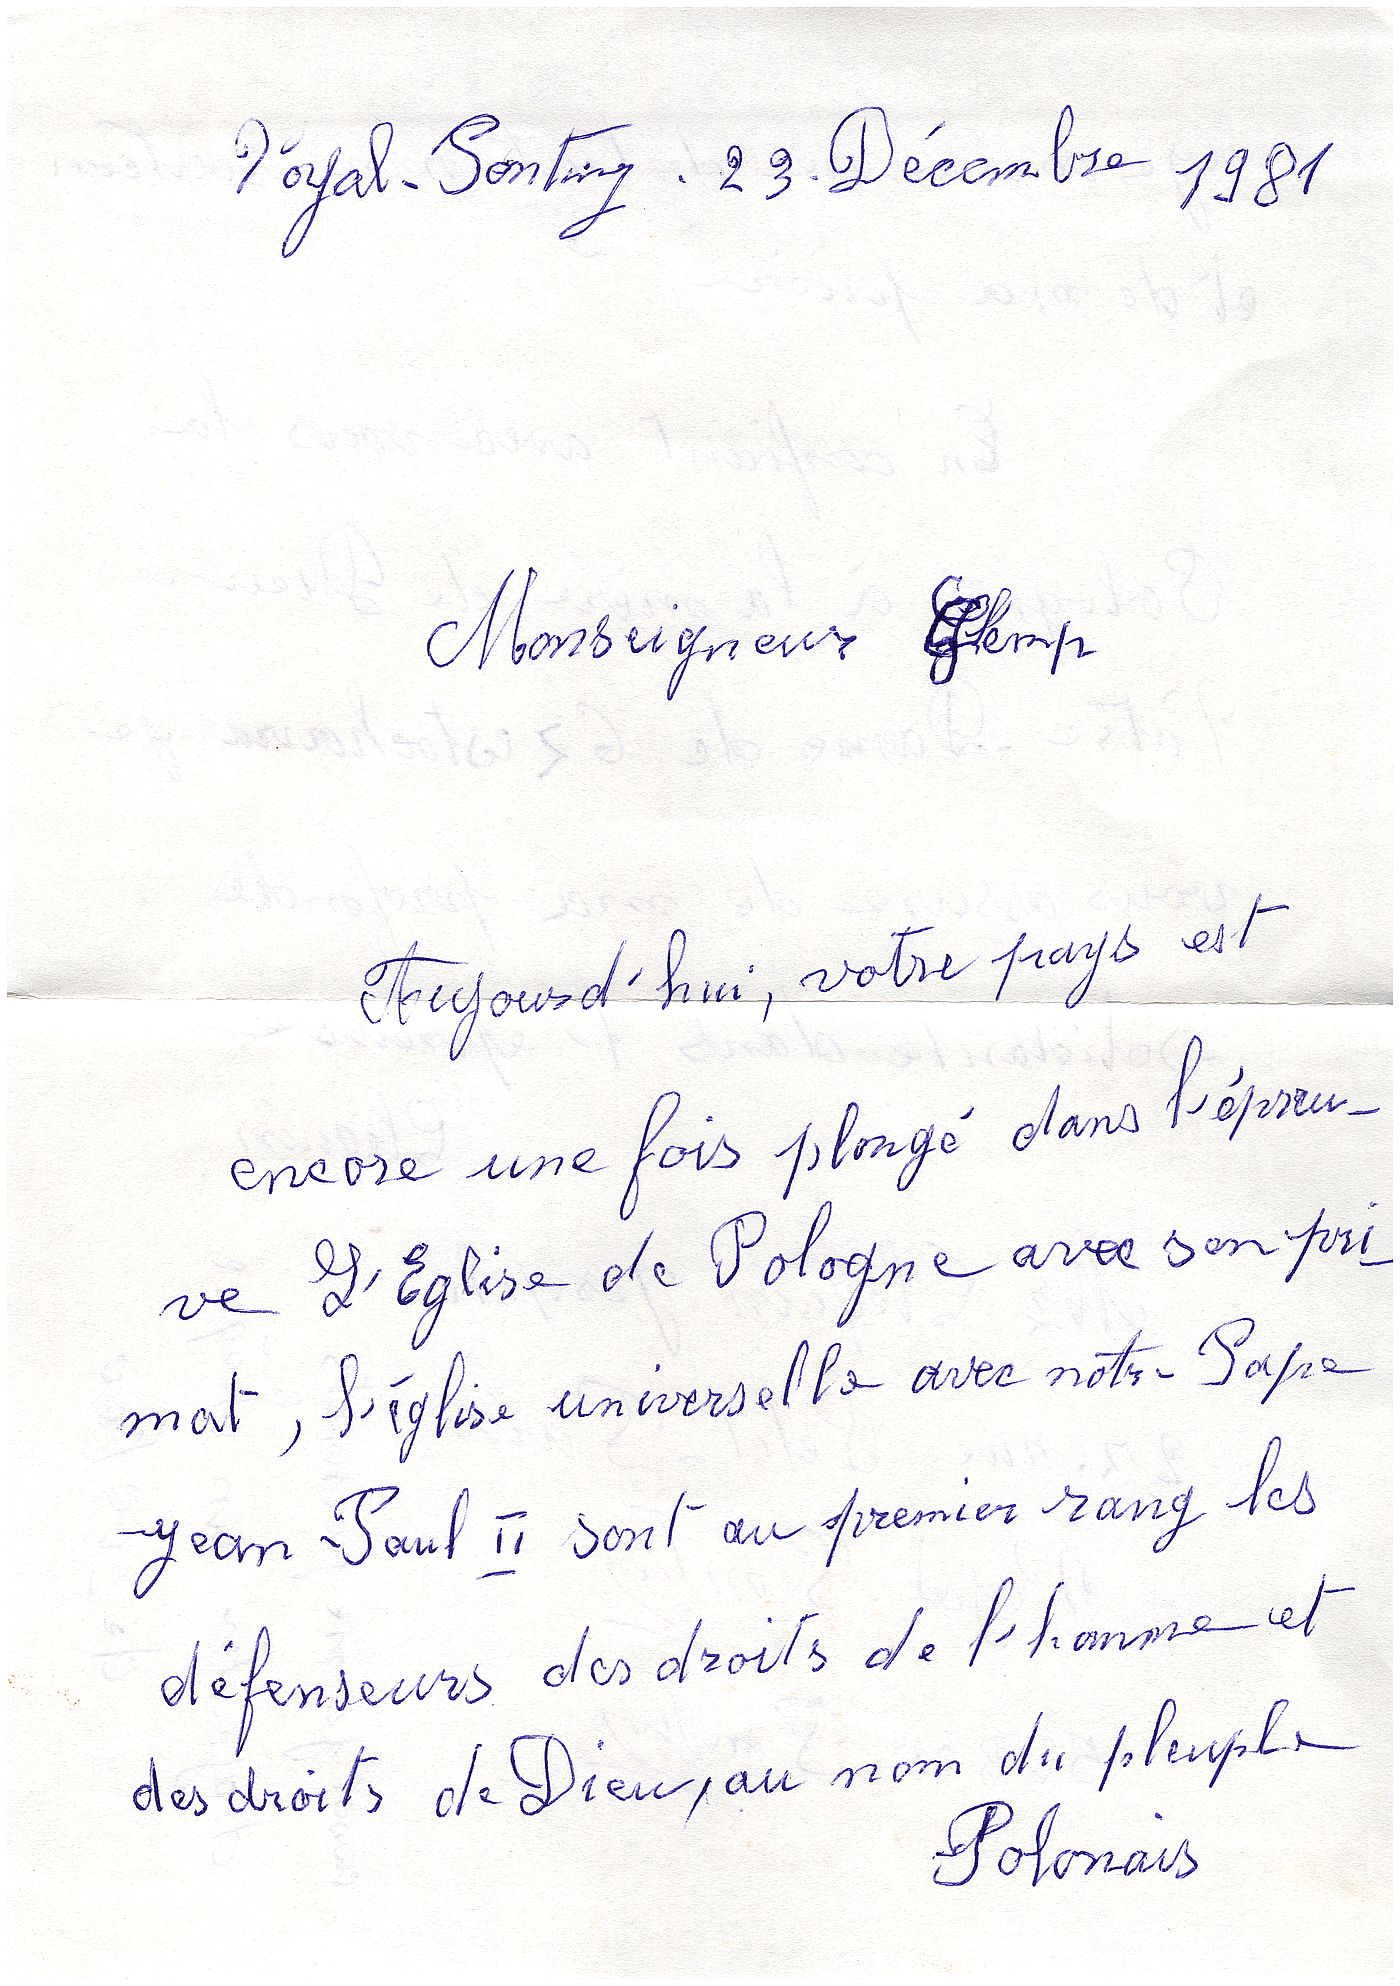 Noyal-Pontivy . 23. Décembre 1981
Monseigneur Glemp
Aujourd'hui, votre pays est
encore une fois plongé dans l'épreu-
ve L'Eglise de Pologne avec son pri-
mat, l'église universelle avec notre Pape
Jean-Paul II sont au premier rang les
défenseurs des droits de l'homme et
des droits de Dieu, au nom du pleuple
Polonais